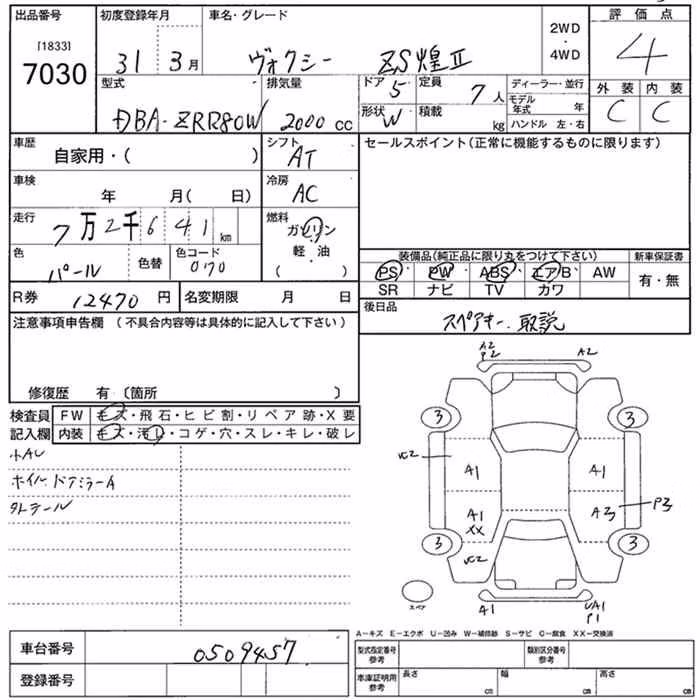 出品番号
[1833]
7030
初度登録年月
31年3月
車名・グレード
ヴォクシー ZS煌Ⅱ
2WD
・
4WD
評価点
4
外装 内装
C C
型式
DBA-ZRR80W
排気量
2000cc
ドア 5
定員 7人
形状 W
積載 kg
ディーラー・並行
モデル年式 年
ハンドル 左・右
車歴
自家用・( )
シフト
AT
セールスポイント(正常に機能するものに限ります)
車検
年 月( 日)
冷房
AC
走行
7万2千641km
燃料
ガソリン
軽・油
( )
色
パール
色替
色コード
070
装備品(純正品に限り丸をつけて下さい)
新車保証書
PS PW ABS エアB AW
SR ナビ TV カワ
有・無
R券 12470円
名変期限 月 日
後日品
スペアキー、取説
注意事項申告欄 (不具合内容等は具体的に記入して下さい)
修復歴 有〔箇所 〕
検査員記入欄
FW キズ・飛石・ヒビ割・リペア跡・X要
内装 キズ・汚レ・コゲ・穴・スレ・キレ・破レ
小AU
ホイル、ドアミラーA
外テール
A2
P2
A2
3 3
UC2
A1 A1
A1
XX
A3
P3
3 3
UC2
スペア
A1
UA1
P1
A-キズ E-エクボ U-凹み W-補修跡 S-サビ C-腐食 XX-交換済
車台番号
0509457
登録番号
型式指定番号
参考
類別区分番号
参考
車庫証明用
参考
長さ cm
幅 cm
高さ cm